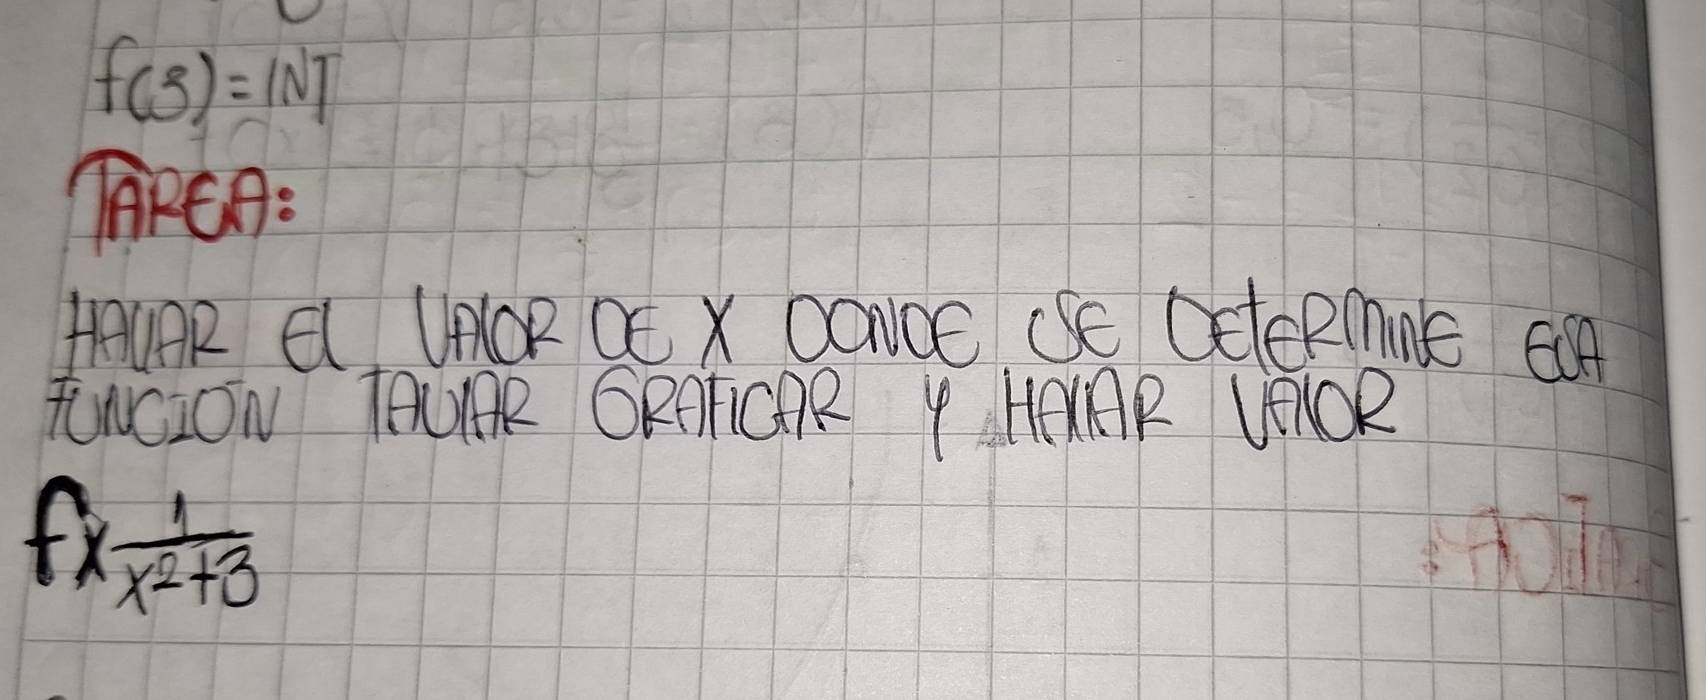 f(3)=INT
TAREA:
HALLAR El VALOR DE X DONDE SE DETERMINE ESA
FUNCIÓN TAULAR GRAFICAR Y HALLAR VALOR
fx 1/x²+3